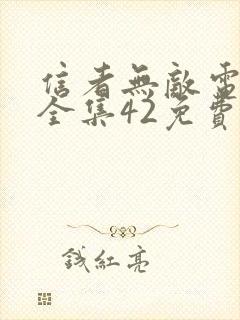 信者無敵電
全集42免費
錢紅亮